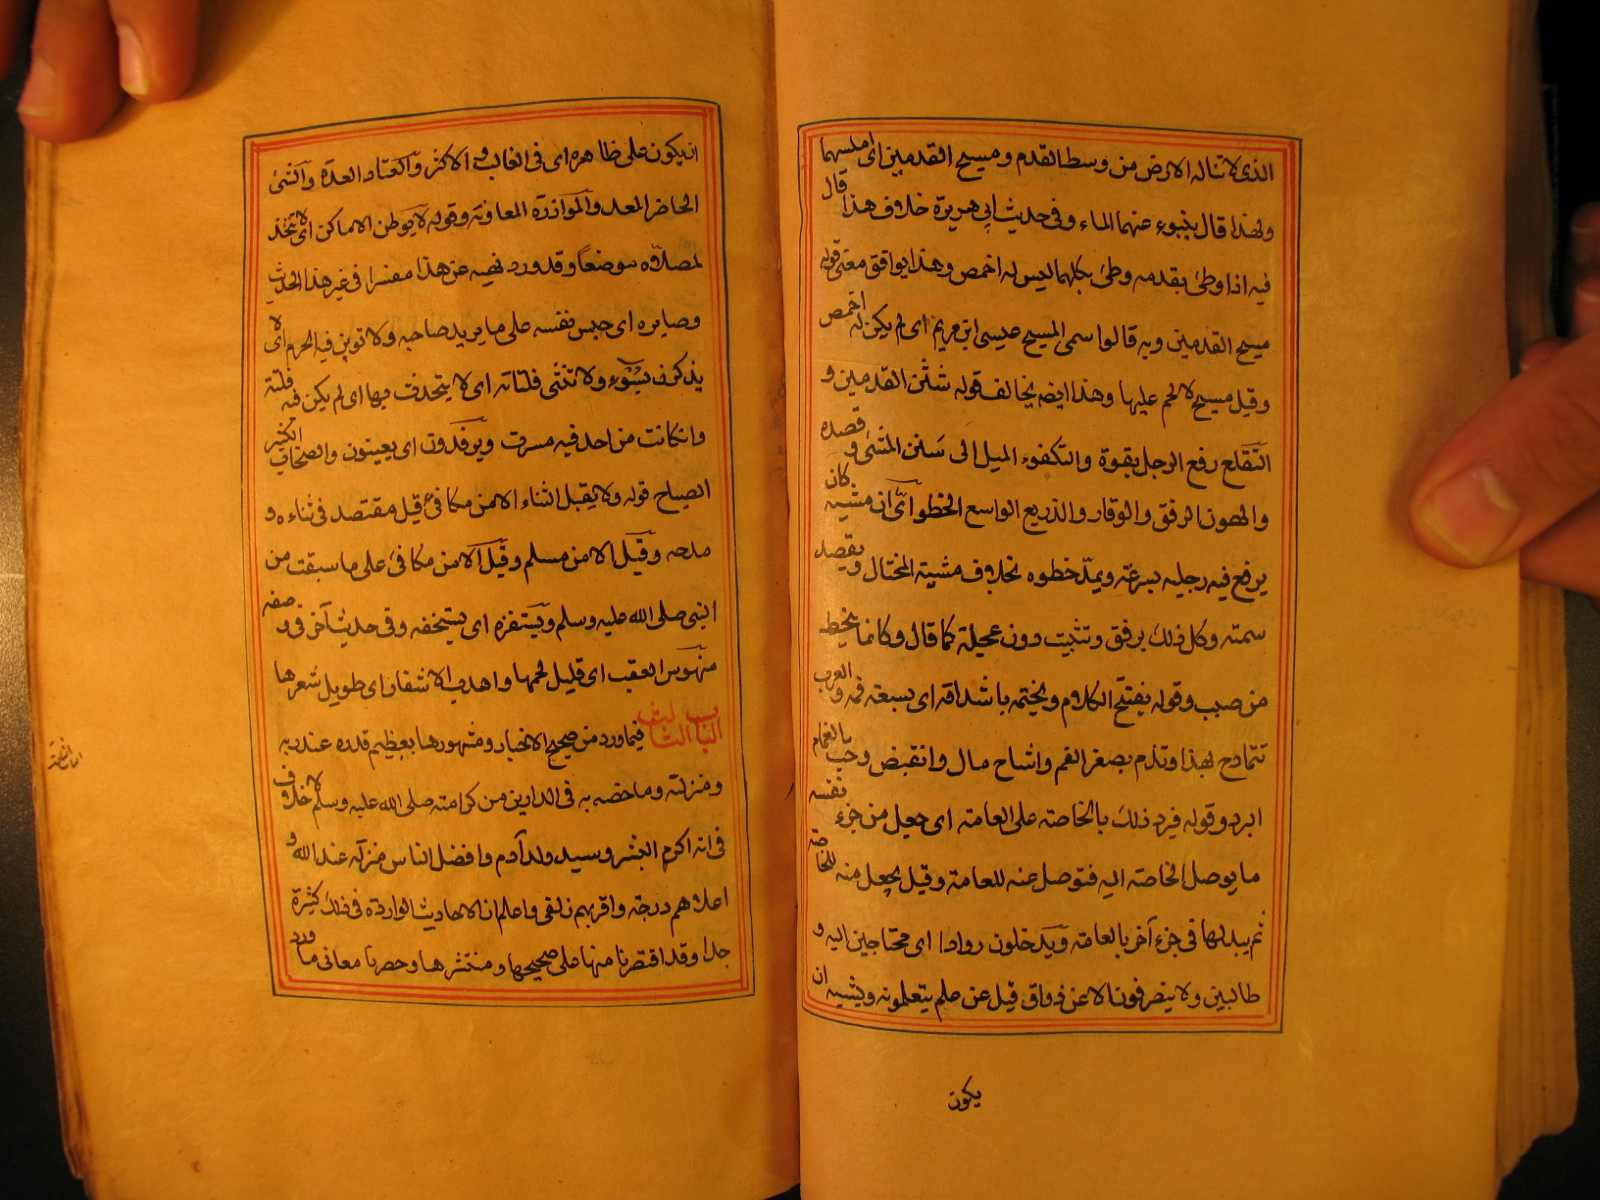 الذى لا تناله الارض من وسط القدم ومسيح القدمين اى ملسهما
ولهذا قال ينبوء عنهما الماء وفى حديث ابى هريرة خلاف هذا قال
فيه اذا وطئ بقدمه وطئ بكلها ليس له اخمص وهذا يوافق معنى قوله
مسيح القدمين وبه قالوا سمى المسيح عيسى ابن مريم اى لم يكن له اخمص
وقيل مسيح لا لحم عليها وهذا ايضا يخالف قوله شثن القدمين و
التقلع رفع الرجل بقوة والتكفوء الميل الى سنن المشى و قصده
والهون الرفق والوقار والذريع الواسع الخطو اى ان مشيه كان
يرفع فيه رجليه بسرعة ويمد خطوه بخلاف مشية المختال ويقصد
سمته وكل ذلك برفق وتثبت دون عجلة كما قال وكانما ينحط
من صبب وقوله يفتتح الكلام ويختمه باشداقه اى بسعة فمه والعرب
تتمادح بهذا وتذم بصغر الفم واشاح مال وانقبض وحب الغمام
البرد وقوله فيرد ذلك بالخاصة على العامة اى جعل من جزء نفسه
ما يوصل الخاصة اليه فتوصل عنه للعامة وقيل يجعل منه للخاصة
ثم يبدلها فى جزء آخر بالعامة ويدخلون روادا اى محتاجين اليه و
طالبين ولا ينصرفون الا عن ذواق قيل عن علم يتعلمونه ويشبه ان
يكون
انيكون على ظاهره اى فى الغالب و الاكثر والعتاد العدة والشئ
الحاضر المعد والموازرة المعاونة وقوله لا يوطن الاماكن اى لا يتخذ
لمصلاه موضعا وقد ورد نهيه عن هذا مفسرا فى غير هذا الحديث
وصابره اى حبس نفسه على ما يريد صاحبه ولا توبن فيه الحرم اى لا
يذكرن بسوء ولا تنثى فلتاته اى لا يتحدث بها اى لم يكن فيه فلتة
وانكانت من احد فيه سترت ويرفدون اى يعينون والصخاب الكثير
الصياح قوله ولا يقبل الثناء الا من مكافئ قيل مقتصد فى ثنائه و
مدحه وقيل الا من مسلم وقيل الا من مكافئ على ما سبقت من
النبى صلى الله عليه وسلم ويستفزه اى يستخفه وفى حديث آخر فى وصفه
منهوس العقب اى قليل لحمها واهدب الاشفار اى طويل شعرها
الباب الثالث فيما ورد من صحيح الاخبار ومشهورها بعظيم قدره عند ربه
ومنزلته وما خصه به فى الدارين من كرامته صلى الله عليه وسلم لا خلاف
فى انه اكرم البشر وسيد ولد آدم وافضل الناس منزلة عند الله و
اعلاهم درجة واقربهم زلفى واعلم ان الاحاديث الواردة فى ذلك كثيرة
جدا وقد اقتصرنا منها على صحيحها ومنتشرها وحصرنا معانى ما ورد